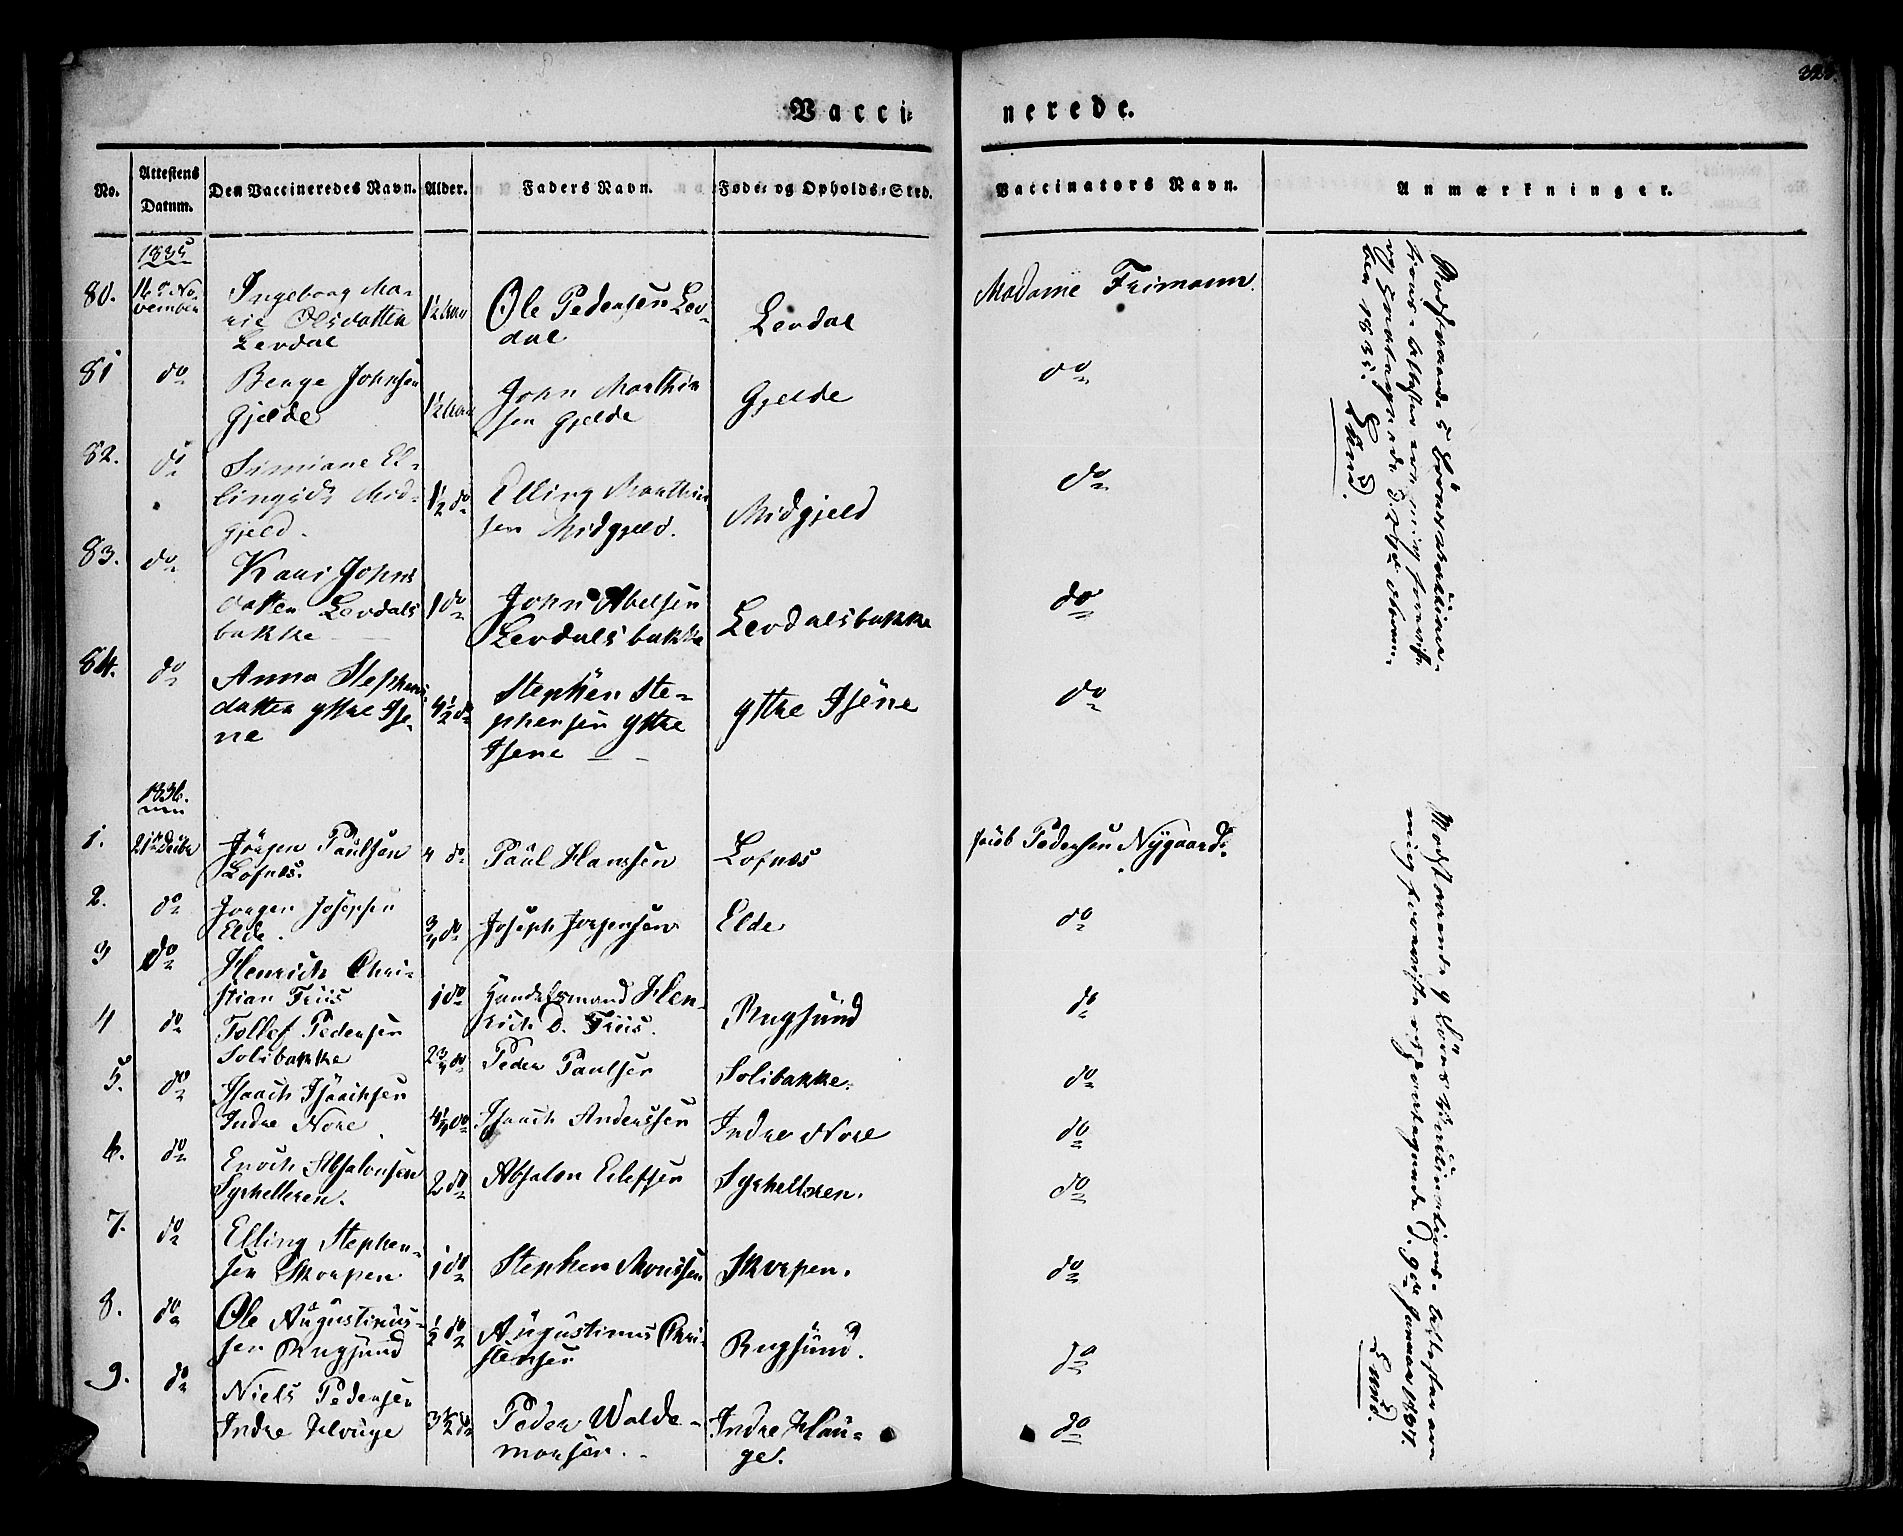 Vacci-
nerede.
No.
Attestens Datum.
Den Vaccineredes Navn.
Alder.
Faders Navn.
Føde- og Opholds-Sted.
Vaccinators Navn.
Anmærkninger.
1835
80. 16de November Ingeborg Marie Olsdatter Levdal 1½ Aar Ole Pedersen Levdal Levdal Madame Friman
81 do Berge Johnsen Gjelde 1½ Aar John Marthinsen Gjelde Gjelde do
82. do Simiane Ellingsd. Midgjeld. 1½ do Elling Marthinsen Midgjeld. Midgjeld do
83. do Kari Johnsdatter Levdalsbakke 1 do John Abelsen Levdalsbakke Levdalsbakke do
84. do Anna Stephensdatter yttre Isene 4½ do Stephen Stephensen yttre Isene yttre Isene do
1836.
1. 21de Decbr Jörgen Paulsen Lofnæs. 4 do Paul Hanssen Lofnæs Jacob Pedersen Nygaard.
2. do Jörgen Josephsen Elde. ¾ do Joseph Jörgensen Elde do
3 do Henrich Christian Friis 1 do Handelsmand Henrich D. Friis. Rugsund do
4 do Tollef Pedersen Solibakke 2¾ do Peder Paulsen Solibakke. do
5. do Isaach Isaachsen Indre Nore 4¼ do Isaach Anderssen Indre Nore do
6. do Enoch Absalonsen Syrhelleren. 2 do Absalon Eilefsen Syrhelleren. do
7. do Elling Stephensen Skorpen 1 do Stephen Monssen Skorpen. do
8. do Ole Augustinussen Rugsund ½ do Augustinus Christensen Rugsund. do
9. do Niels Pedersen Indre Hauge 3½ do Peder Waldemarsen. Indre Hauge. do
Modstaaende 5 Vaccinations-
attester ere mig foreviste
og
ber 1835.
Lund.
Modstaaende 9 Vaccinations-attester ere
mig foreviste og d. 9de Januar 1837.
Lund.